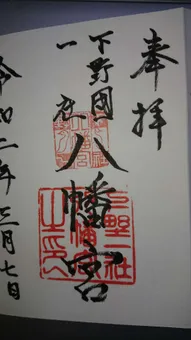 奉拝
下野國
一社
八幡宮
令和二年三月七日